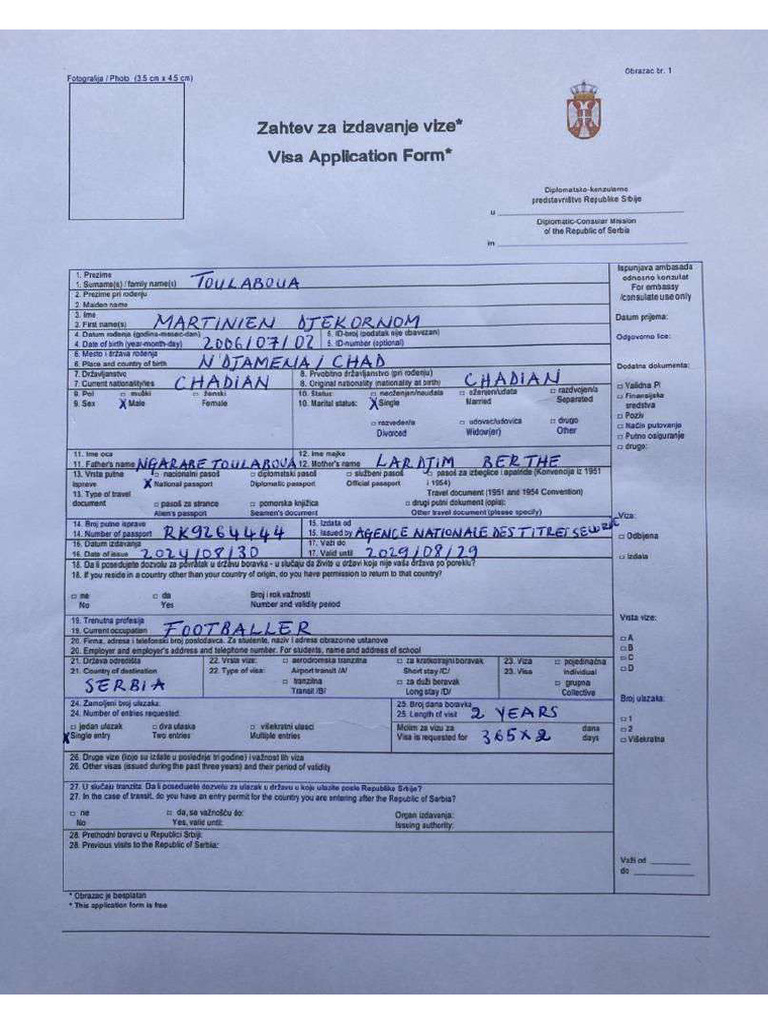 Obrazac br. 1
Fotografija / Photo (3.5 cm x 4.5 cm)
Zahtev za izdavanje vize*
Visa Application Form*
Diplomatsko-konzularno
predstavništvo Republike Srbije
u
Diplomatic-Consular Mission
of the Republic of Serbia
in
1. Prezime
1. Surname(s) / family name(s) TOULABOUA
2. Prezime pri rođenju
2. Maiden name
3. Ime
3. First name(s) MARTINIEN DJEKORNOM
4. Datum rođenja (godina-mesec-dan) 5. ID-broj (podatak nije obavezan)
4. Date of birth (year-month-day) 2006/07/02 5. ID-number (optional)
6. Mesto i država rođenja
6. Place and country of birth N'DJAMENA / CHAD
7. Državljanstvo 8. Prvobitno državljanstvo (pri rođenju)
7. Current nationality/ies CHADIAN 8. Original nationality (nationality at birth) CHADIAN
9. Pol □ muški □ ženski 10. Status: □ neoženjen/neudata □ oženjen/udata □ razdvojen/a
9. Sex X Male Female 10. Marital status: X Single Married Separated
□ razveden/a □ udovac/udovica □ drugo
Divorced Widow(er) Other
11. Ime oca 12. Ime majke
11. Father's name NGARABE TOULABOUA 12. Mother's name LARDJIM BERTHE
13. Vrsta putne □ nacionalni pasoš □ diplomatski pasoš □ službeni pasoš □ pasoš za izbeglice i apatride (Konvencija iz 1951
isprave X National passport Diplomatic passport Official passport i 1954)
13. Type of travel Travel document (1951 and 1954 Convention)
document □ pasoš za strance □ pomorska knjižica □ drugi putni dokument (opis):
Alien's passport Seamen's document Other travel document (please specify)
14. Broj putne isprave 15. Izdata od
14. Number of passport RK9264444 15. Issued by AGENCE NATIONALE DES TITRES
16. Datum izdavanja 17. Važi do
16. Date of issue 2024/08/30 17. Valid until 2029/08/29
18. Da li posedujete dozvolu za povratak u državu boravka - u slučaju da živite u državi koja nije vaša država po poreklu?
18. If you reside in a country other than your country of origin, do you have permission to return to that country?
□ ne □ da Broj i rok važnosti
No Yes Number and validity period
19. Trenutna profesija
19. Current occupation FOOTBALLER
20. Firma, adresa i telefonski broj poslodavca. Za studente, naziv i adresa obrazovne ustanove
20. Employer and employer's address and telephone number. For students, name and address of school
21. Država odredišta 22. Vrsta vize: □ aerodromska tranzitna □ za kratkotrajni boravak 23. Viza □ pojedinačna
21. Country of destination 22. Type of visa: Airport transit /A/ Short stay /C/ 23. Visa Individual
SERBIA □ tranzitna □ za duži boravak □ grupna
Transit /B/ Long stay /D/ Collective
24. Zamoljeni broj ulazaka: 25. Broj dana boravka
24. Number of entries requested: 25. Length of visit 2 YEARS
□ jedan ulazak □ dva ulaska □ višekratni ulasci Molim za vizu za dana
X Single entry Two entries Multiple entries Visa is requested for 365x2 days
26. Druge vize (koje su izdate u poslednje tri godine) i važnost tih viza
26. Other visas (issued during the past three years) and their period of validity
27. U slučaju tranzita. Da li posedujete dozvolu za ulazak u državu u koju ulazite posle Republike Srbije?
27. In the case of transit, do you have an entry permit for the country you are entering after the Republic of Serbia?
□ ne □ da, sa važnošću do: Organ izdavanja:
No Yes, valid until: Issuing authority:
28. Prethodni boravci u Republici Srbiji:
28. Previous visits to the Republic of Serbia:
Ispunjava ambasada
odnosno konzulat
For embassy
/consulate use only
Datum prijema:
Odgovorno lice:
Dodatna dokumenta:
□ Validna PI
□ Finansijska
sredstva
□ Poziv
□ Način putovanja
□ Putno osiguranje
□ drugo:
Viza:
□ Odbijena
□ Izdata
Vrsta vize:
□ A
□ B
□ C
□ D
Broj ulazaka:
□ 1
□ 2
□ Višekratna
Važi od
do
* Obrazac je besplatan
* This application form is free